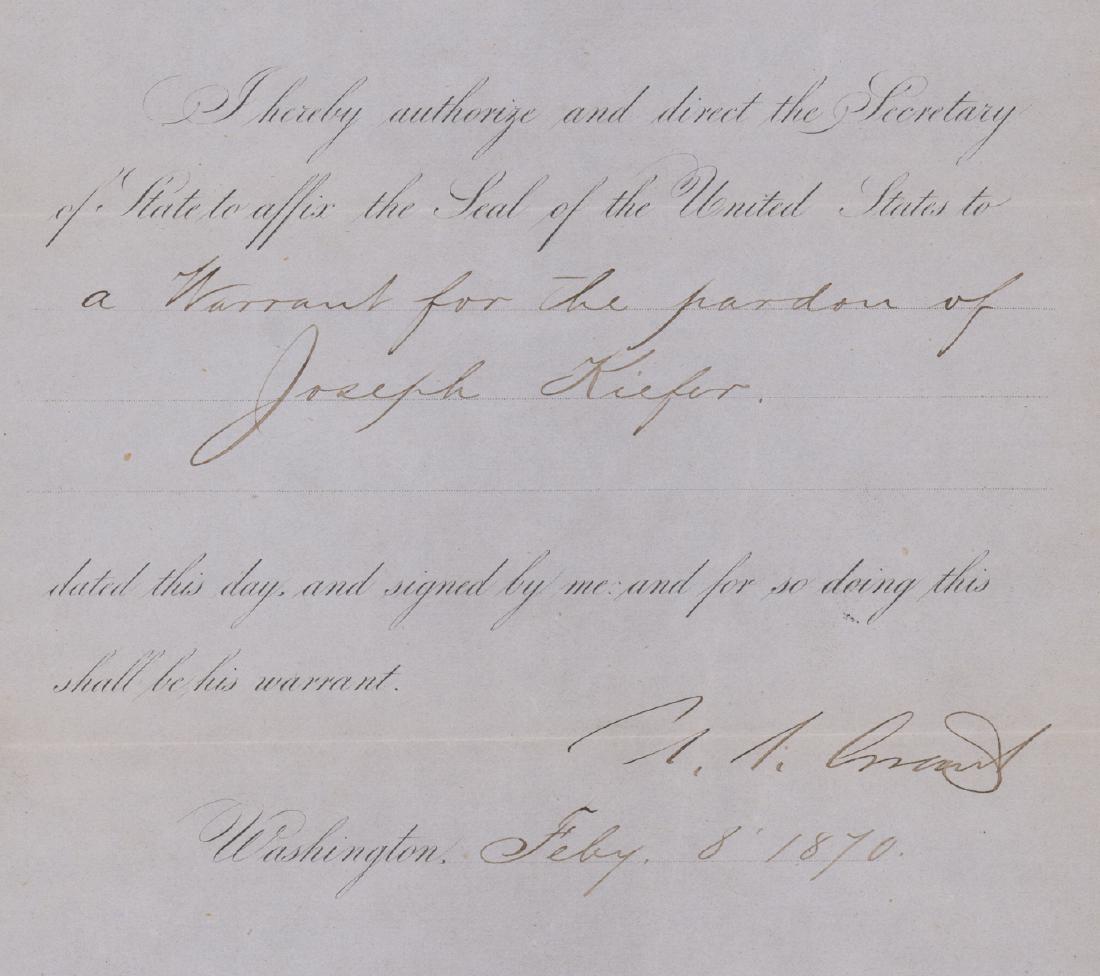 I hereby authorize and direct the Secretary
of State to affix the Seal of the United States to
a Warrant for the pardon of
Joseph Kiefer.
dated this day, and signed by me: and for so doing this
shall be his warrant.
U. S. Grant
Washington. Feby. 8 1870.